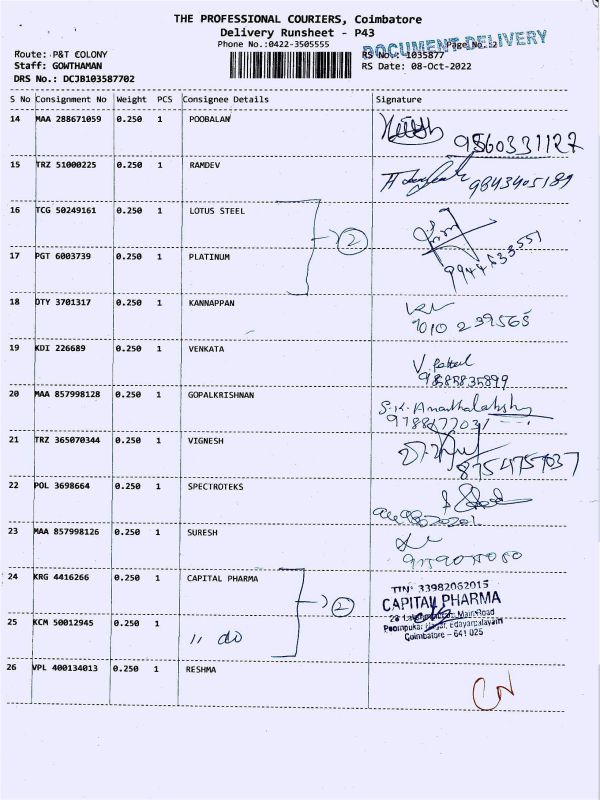 THE PROFESSIONAL COURIERS, Coimbatore
Delivery Runsheet - P43
Phone No.:0422-3505555
DOCUMENT DELIVERY
Page No.:2
Route: P&T COLONY
RS No.: 1035877
Staff: GOWTHAMAN
RS Date: 08-Oct-2022
DRS No.: DCJB103587702
S No Consignment No Weight PCS Consignee Details Signature
14 MAA 288671059 0.250 1 POOBALAN
9560331127
15 TRZ 51000225 0.250 1 RAMDEV
9843405189
16 TCG 50249161 0.250 1 LOTUS STEEL
2
17 PGT 6003739 0.250 1 PLATINUM
18 DTY 3701317 0.250 1 KANNAPPAN
19 KDI 226689 0.250 1 VENKATA
9885835899
20 MAA 857998128 0.250 1 GOPALKRISHNAN
S.K. Ananthalakshmy
21 TRZ 365070344 0.250 1 VIGNESH
8754757037
22 POL 3698664 0.250 1 SPECTROTEKS
23 MAA 857998126 0.250 1 SURESH
24 KRG 4416266 0.250 1 CAPITAL PHARMA
2
TIN: 33982062015
CAPITAL PHARMA
Main Road
Poompukar Nagar, Edayarpalayam
Coimbatore - 641 025
25 KCM 50012945 0.250 1
〃 do
26 VPL 400134013 0.250 1 RESHMA
CN